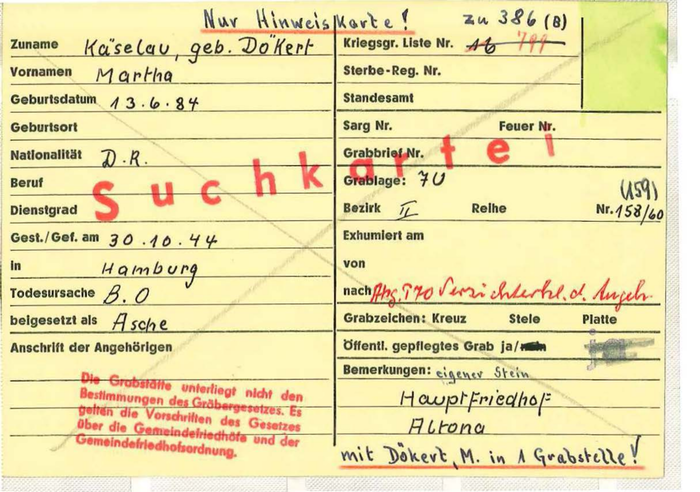 Nur Hinweiskarte!
zu 386 (B)
Zuname Käselau, geb. Dökert
Vornamen Martha
Geburtsdatum 13.6.84
Geburtsort
Nationalität D.R.
Beruf
Dienstgrad
Gest./Gef. am 30.10.44
in Hamburg
Todesursache B.O
beigesetzt als Asche
Anschrift der Angehörigen
Die Grabstätte unterliegt nicht den
Bestimmungen des Gräbergesetzes. Es
gelten die Vorschriften des Gesetzes
über die Gemeindefriedhöfe und der
Gemeindefriedhofsordnung.
Suchkartei
Kriegsgr. Liste Nr. 16 799
Sterbe-Reg. Nr.
Standesamt
Sarg Nr. Feuer Nr.
Grabbrief Nr.
Grablage: 7U
(159)
Bezirk II Reihe Nr. 158/60
Exhumiert am
von
nach Abg. T70 Verzichterkl. d. Angeh.
Grabzeichen: Kreuz Stele Platte
Öffentl. gepflegtes Grab ja/nein
Bemerkungen: eigener Stein
Hauptfriedhof
Altona
mit Dökert, M. in 1 Grabstelle!